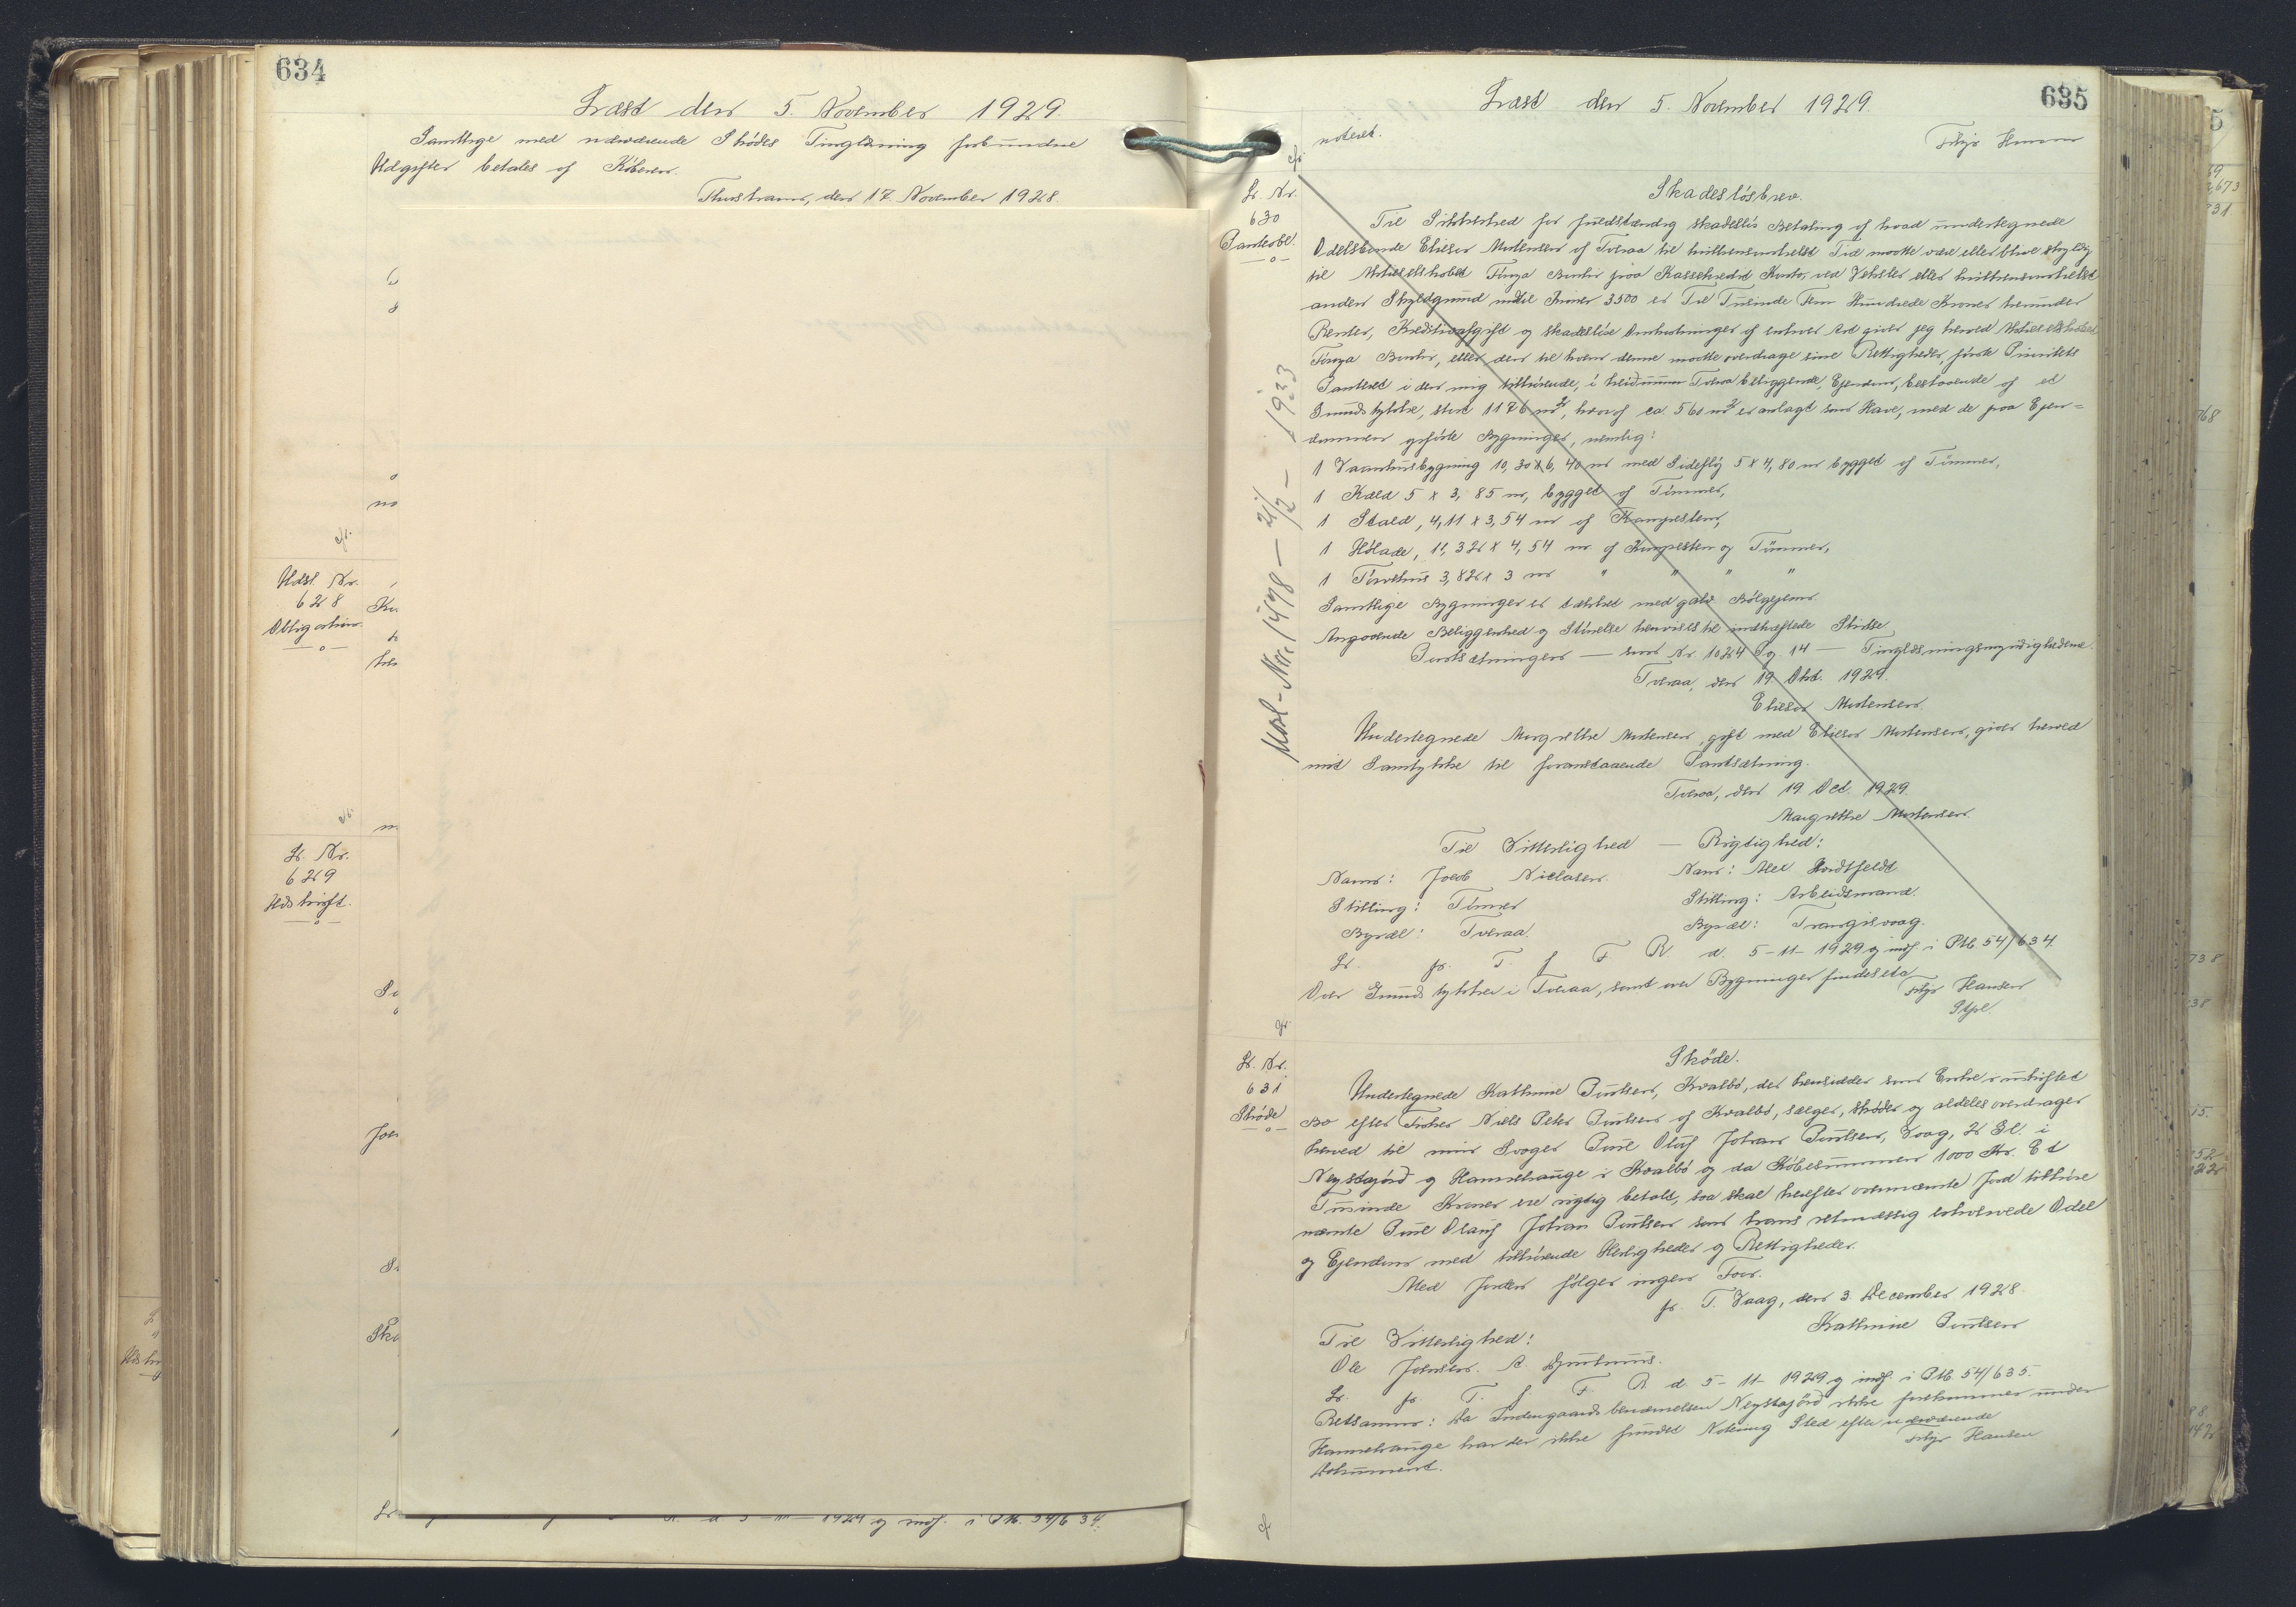 634
Læst den 5. November 1929.
Samtlige med nærværende Skødes Tinglæsning forbundne
Udgifter betales af Køberen.
Thorshavn, den 17. November 1928.
no
cfr.
Udsl. Nr.
628
Obligation.
Ku
cfr.
Lb. Nr.
629
Udskrift.
Joe
Sko
Lb
d 5-11-1929 og indf. i Ptb. 54/634.
635
Læst den 5. November 1929.
noteret.
Hansen
cfr.
Lb. Nr.
630
Panteobl.
Skadesløsbrev.
Til Sikkerhed for fuldstændig skadesløs Betaling af hvad undertegnede
Odelsbonde Elieser Mortensen af Tveraa til hvilkensomhelst Tid maatte være eller blive skyldig
til Aktieselskabet Føroya Banki paa Kassekredit Konto, ved Veksler eller hvilkensomhelst
anden Skyldgrund indtil Kroner 3500 er Tre Tusinde Fem Hundrede Kroner herunder
Renter, Kreditivafgift og skadesløse Omkostninger af enhver Art giver jeg herved Aktieselskabet
Føroya Banki, eller den til hvem denne maatte overdrage sine Rettigheder, første Prioritets
Panteret i den mig tilhørende, i Tveraa beliggende, Ejendom, bestaaende af et
Grundstykke, stort 1176 m2, hvoraf ca. 560 m2 er anlagt som Have, med de paa Ejen=
dommen opførte Bygninger, nemlig:
1 Vaaninghusbygning 10,30 x 6,40 m med Sidefløj 5 x 4,80 m bygget af Tømmer,
1 Kæld 5 x 3,85 m, bygget af Tømmer,
1 Stald, 4,11 x 3,54 m af Kampesten,
1 Hølade, 11,32 x 4,54 m. af Kampesten og Tømmer,
1 Tørvehus 3,82 x 3 m " " " "
Samtlige Bygninger er tækket med galv. Bølgejern.
Angaaende Beliggenhed og Størrelse henvises til indhæftede Skidse
Pantsætningen — som Nr. 1024 Pg. 14 — Tinglæsningsmyndighederne.
Tveraa, den 19 Okt. 1929.
Elieser Mortensen.
Undertegnede Margrethe Mortensen, gift med Elieser Mortensen, giver herved
mit Samtykke til foranstaaende Pantsætning.
Tveraa, den 19 Oct. 1929.
Margrethe Mortensen.
Til Vitterlighed — Rigtighed:
Navn: Jacob Niclasen. Navn: Alex Hvidtfeldt
Stilling: Tømrer Stilling: Arbeidsmand.
Bopæl: Tveraa. Bopæl: Trangisvaag.
Lb. fr. T. f. F. R. d. 5-11-1929 og indf. i Ptb. 54/634.
Over Grundstykker i Tveraa, samt over Bygninger findes ikke
Hansen
Stpl.
Mosl-Nr. 1478 — 21/2 — 1933
cfr.
Lb. Nr.
631
Skøde
Skøde.
Undertegnede Kathrine Poulsen, Kvalbø, der hensidder som Enke i uskiftet
Bo efter Fisker Niels Peter Poulsen af Kvalbø, sælger, skøder og aldeles overdrager
herved til min Svoger Poul Oluf Johan Poulsen, Vaag, 2 Gl. i
Neystajørd og Hamrehauge i Kvalbø og da Købesummen 1000 Kr. Et
Tusinde Kroner ere rigtig betalt, saa skal herefter ovennævnte Jord tilhøre
nævnte Poul Olauf Johan Poulsen som hans retmæssig erhvervede Odel
og Ejendom med tilhørende Herligheder og Rettigheder.
Med Jorden følger ingen Faar.
fr. T. Vaag, den 3. December 1928.
Kathrine Poulsen
Til Vitterlighed:
Ole Joensen. A. Djurhuus.
Lb. fr. T. f. F. R. d. 5-11-1929 og indf. i Ptb. 54/635.
Retsanm: Da Indengaardsbenævnelsen Neystajørd ikke forekommer under
Hamrehauge har der ikke fundet Notering Sted efter nærværende
Dokument.
Hansen
cf